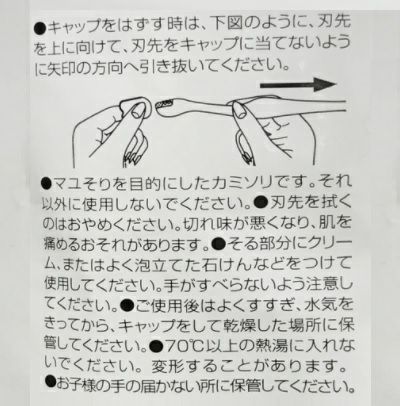 ●キャップをはずす時は、下図のように、刃先
を上に向けて、刃先をキャップに当てないよう
に矢印の方向へ引き抜いてください。
●マユそりを目的にしたカミソリです。それ
以外に使用しないでください。●刃先を拭く
のはおやめください。切れ味が悪くなり、肌を
痛めるおそれがあります。●そる部分にクリー
ム、またはよく泡立てた石けんなどをつけて
使用してください。手がすべらないよう注意し
てください。●ご使用後はよくすすぎ、水気を
きってから、キャップをして乾燥した場所に保
管してください。●70℃以上の熱湯に入れな
いでください。変形することがあります。
●お子様の手の届かない所に保管してください。